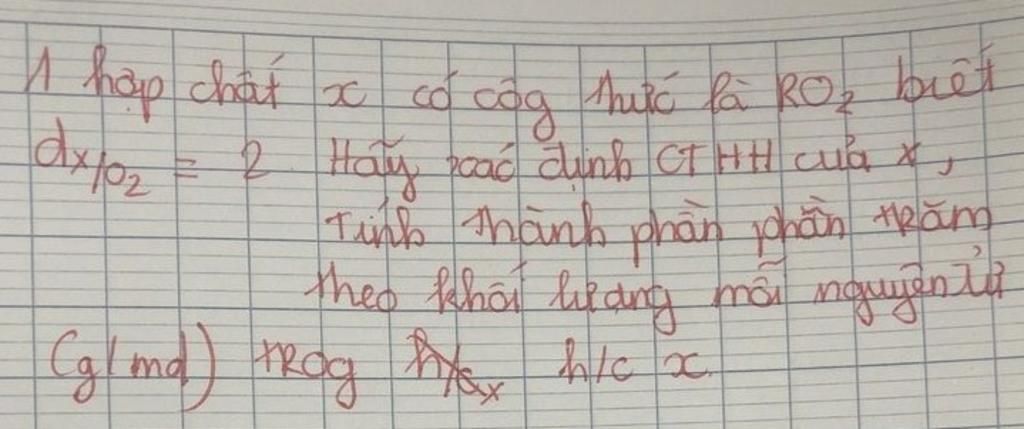 1 hợp chất x có côg thức là RO₂ biết
dx/O₂ = 2 Hãy xác định CTHH của x,
Tính thành phần phần trăm
theo khối lượng mỗi nguyên tử
(g/mol) trog h/c x